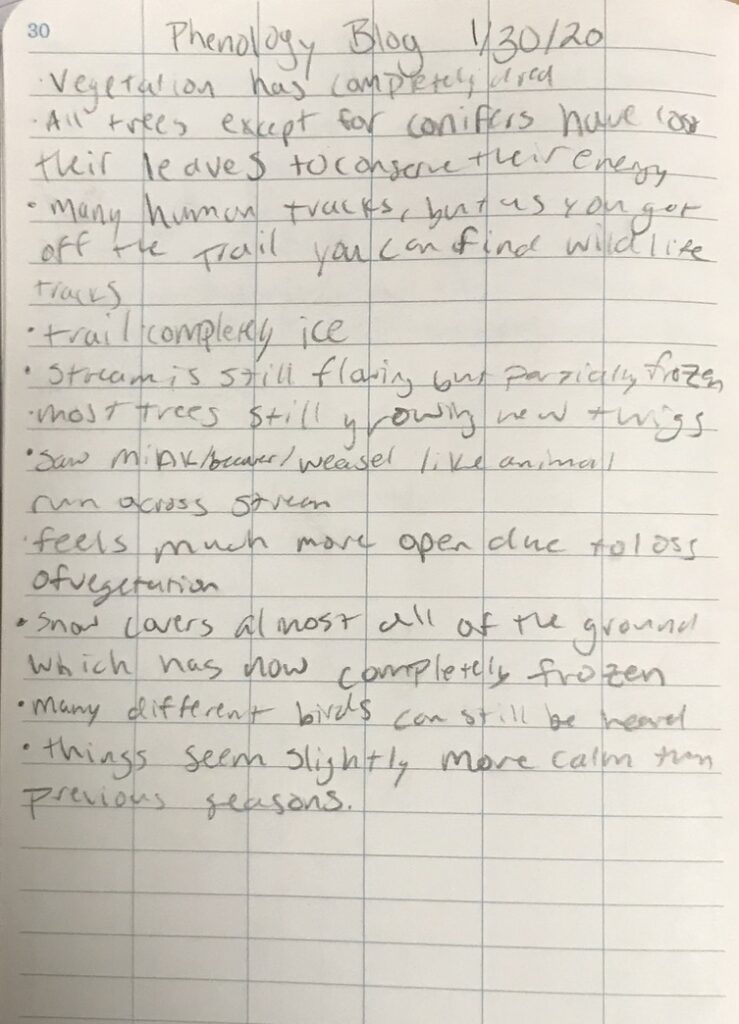 30
Phenology Blog 1/30/20
· Vegetation has completely died
· All trees except for conifers have lost
their leaves to conserve their energy
· many human tracks, but as you get
off the trail you can find wildlife
tracks
· trail completely ice
· Stream is still flowing but partially frozen
· most trees still growing new twigs
· Saw mink/beaver/weasel like animal
run across stream
· feels much more open due to loss
of vegetation
· Snow covers almost all of the ground
which has now completely frozen
· many different birds can still be heard
· things seem slightly more calm than
previous seasons.